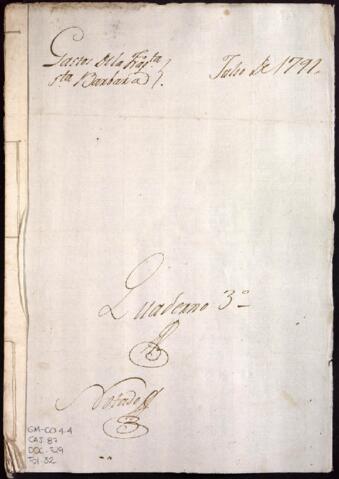 Gastos de la Frag.ta
Sta Barbara
Julio de 1791.
Quaderno 3º
Notado
GM-CO 4-4
CAJ. 87
DOC. 329
Fol 32